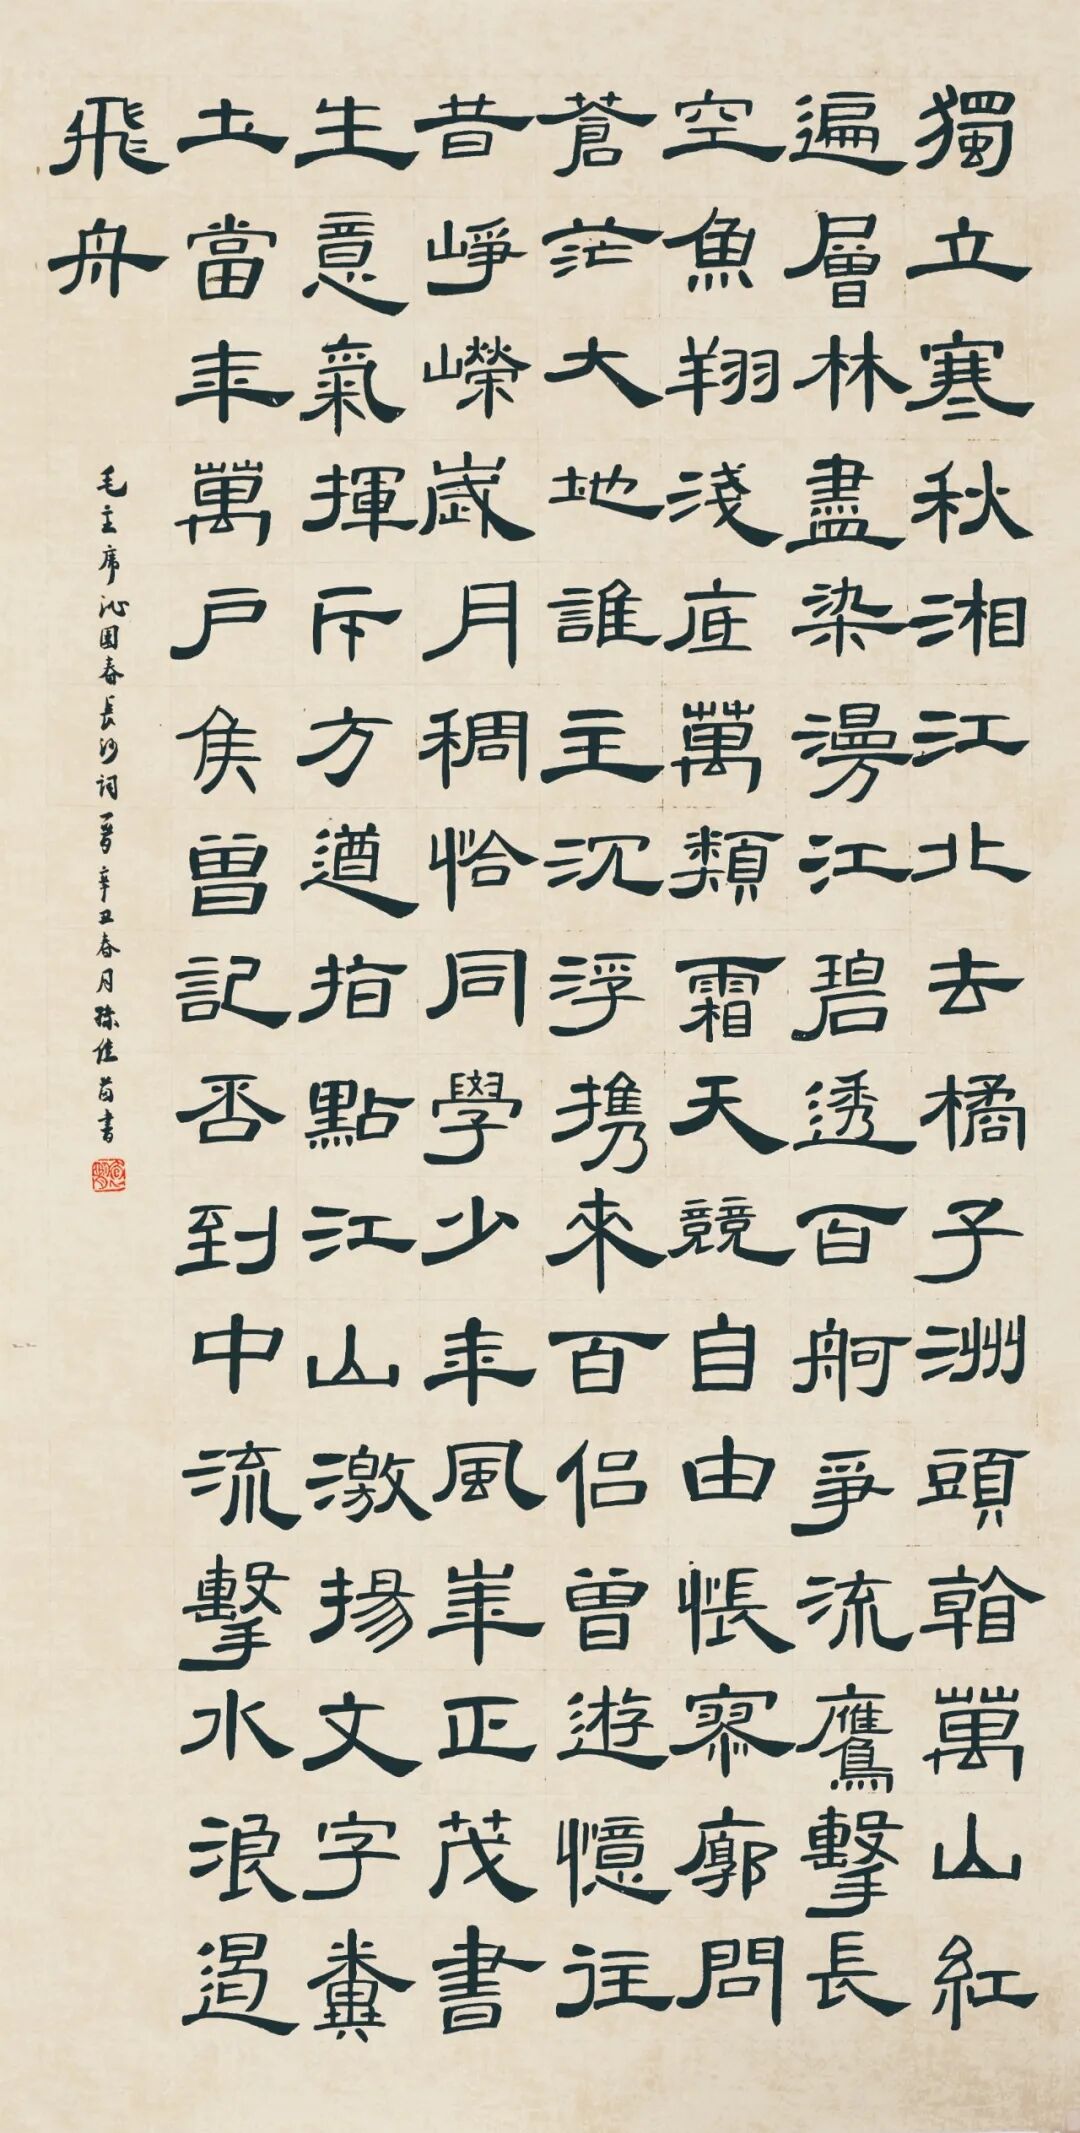 獨立寒秋湘江北去橘子洲頭看萬山紅
遍層林盡染漫江碧透百舸爭流鷹擊長
空魚翔淺底萬類霜天競自由悵寥廓問
蒼茫大地誰主沉浮携來百侣曾遊憶往
昔崢嶸歲月稠恰同學少年風華正茂書
生意氣揮斥方遒指點江山激揚文字糞
土當年萬户侯曾記否到中流擊水浪遏
飛舟
毛主席沁園春長沙詞一首辛丑春月佳書